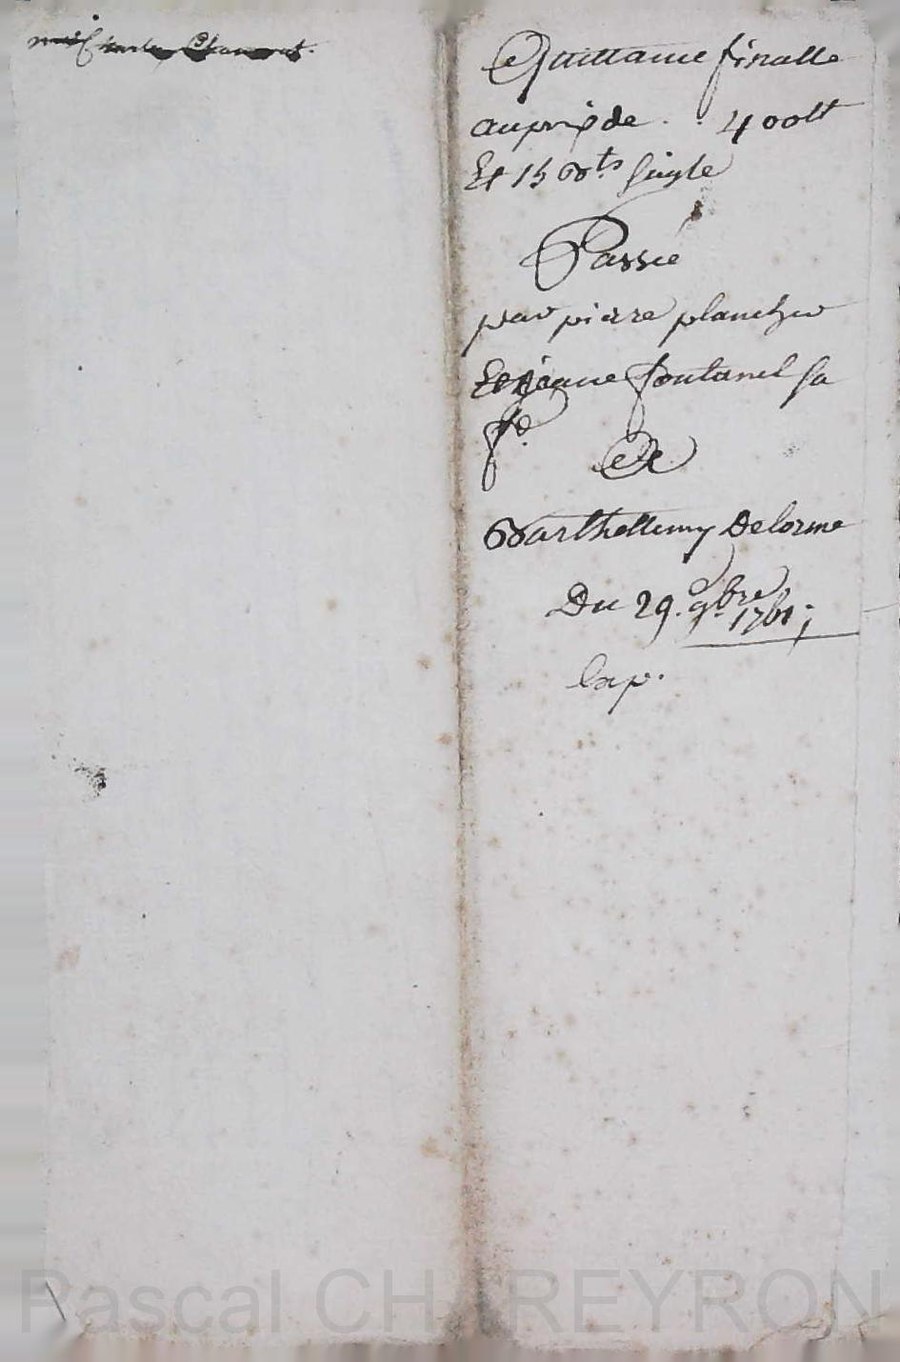 Quittance finalle
au prix de . . 400lt
Et 15 bts seigle
Passée
par pierre plancher
Et Jeanne fontanel sa
fe
A
Barthellemy Delorme
Du 29. 9bre 1761;
Exp.
Pascal CHAREYRON